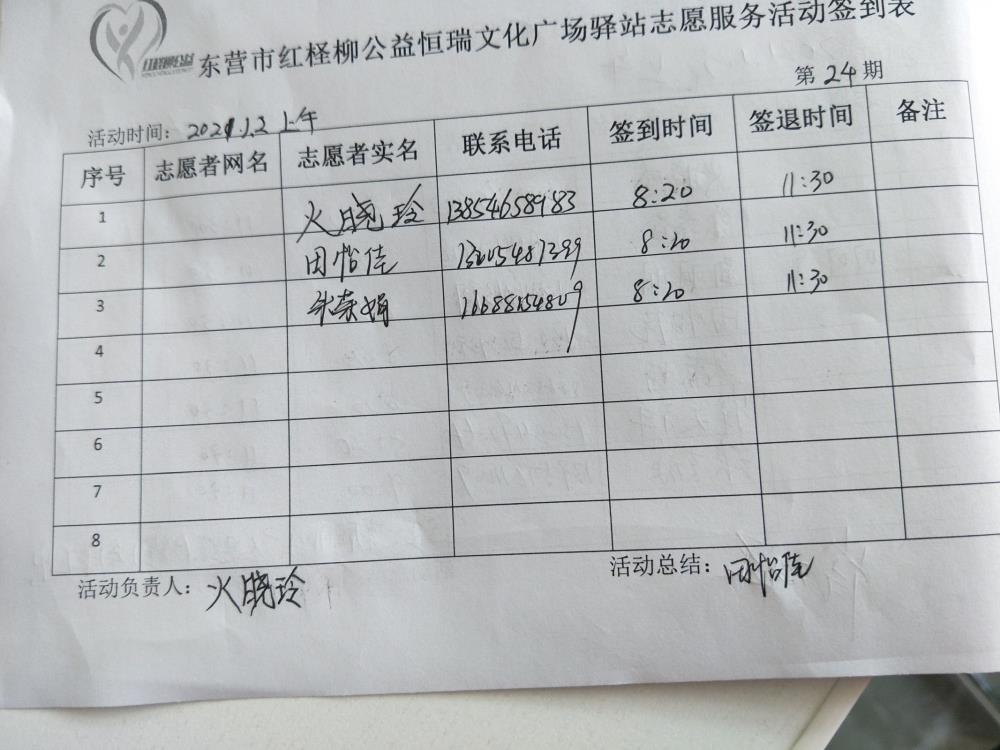 红柽柳公益
东营市红柽柳公益恒瑞文化广场驿站志愿服务活动签到表
第 24 期
活动时间：2021.1.2 上午
序号 志愿者网名 志愿者实名 联系电话 签到时间 签退时间 备注
1 火晓玲 13854658983 8:20 11:30
2 田怡佳 8:20 11:30
3 荣娟 8:20 11:30
4
5
6
7
8
活动负责人：火晓玲
活动总结：田怡佳